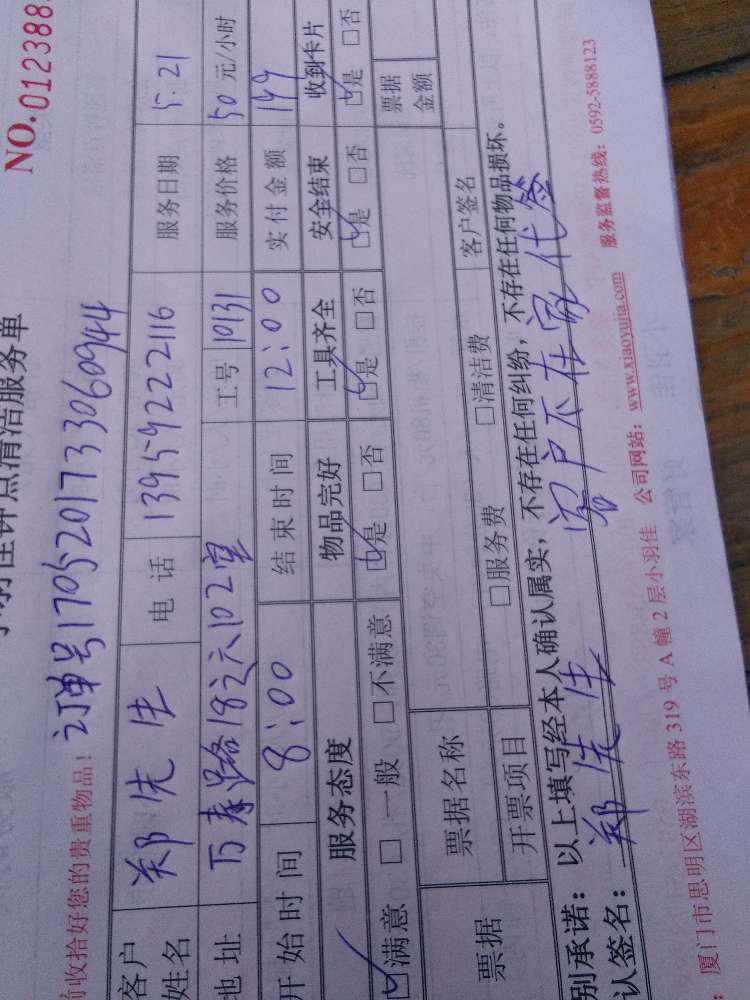 NO.0123883
钟点清洁服务单
收拾好您的贵重物品！ 订单号170520173306 0944
客户姓名 郑先生 电话 13959222116 服务日期 5.21
地址 万寿路18之六102室 工号 10131 服务价格 50元/小时
开始时间 8:00 结束时间 12:00 实付金额 149
服务态度 物品完好 工具齐全 安全结束 收到卡片
☑满意 □一般 □不满意 ☑是 □否 ☑是 □否 ☑是 □否 ☑是 □否
票据 票据名称 票据金额
开票项目 □服务费 □清洁费 客户签名
别承诺：以上填写经本人确认属实，不存在任何纠纷，不存在任何物品损坏。
认签名：郑先生 客户不在家代签
厦门市思明区湖滨东路319号A幢2层小羽佳 公司网站：www.xiaoyujia.com 服务监督热线：0592-5888123